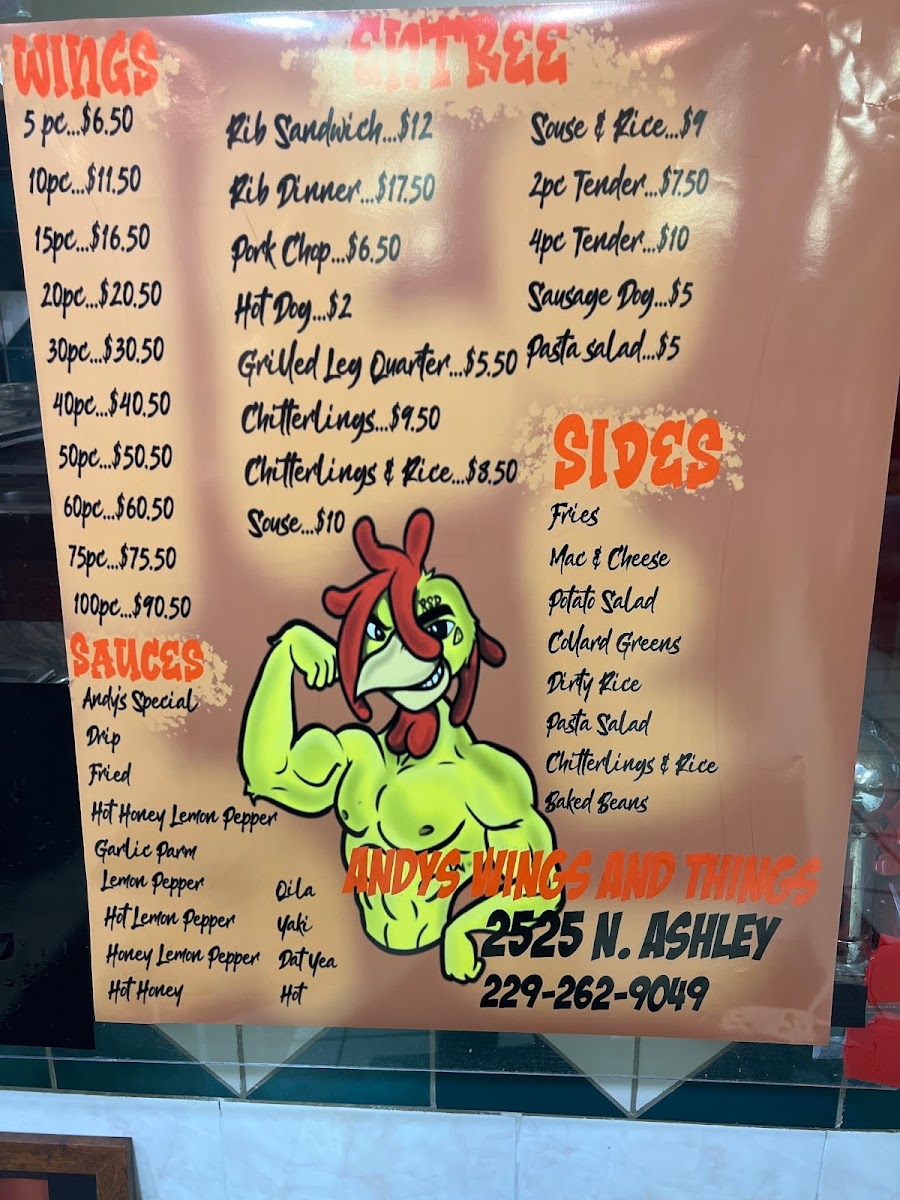 WINGS
5 pc...$6.50
10pc...$11.50
15pc...$16.50
20pc...$20.50
30pc...$30.50
40pc...$40.50
50pc...$50.50
60pc...$60.50
75pc...$75.50
100pc...$90.50
SAUCES
Andy's Special
Drip
Fried
Hot Honey Lemon Pepper
Garlic Parm
Lemon Pepper
Hot Lemon Pepper
Honey Lemon Pepper
Hot Honey
Qila
Yaki
Dat Yea
Hot
ENTREE
Rib Sandwich...$12
Rib Dinner...$17.50
Pork Chop...$6.50
Hot Dog...$2
Grilled Leg Quarter...$5.50
Chitterlings...$9.50
Chitterlings & Rice...$8.50
Souse...$10
Souse & Rice...$9
2pc Tender...$7.50
4pc Tender...$10
Sausage Dog...$5
Pasta salad...$5
SIDES
Fries
Mac & Cheese
Potato Salad
Collard Greens
Dirty Rice
Pasta Salad
Chitterlings & Rice
Baked Beans
RSP
ANDYS WINGS AND THINGS
2525 N. ASHLEY
229-262-9049